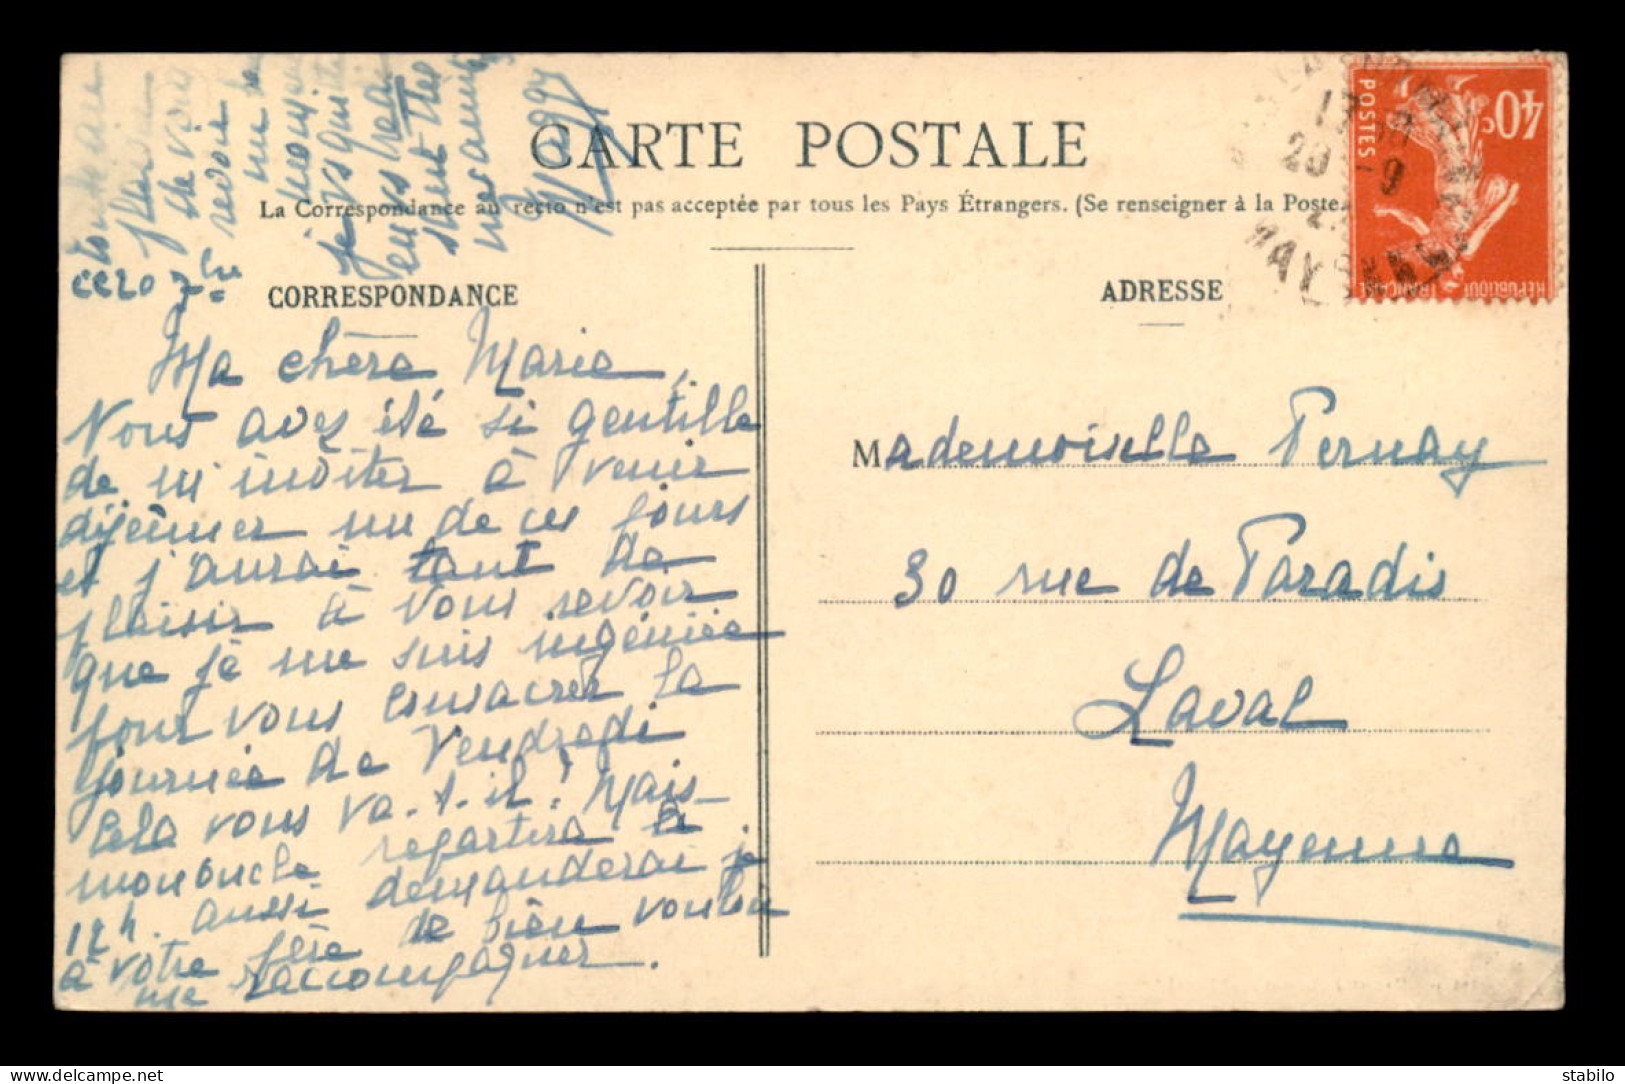 CARTE POSTALE
La Correspondance au recto n'est pas acceptée par tous les Pays Étrangers. (Se renseigner à la Poste
CORRESPONDANCE
ce 20 7bre
Ma chère Marie,
Vous avez été si gentille
de m'inviter à venir
déjeuner un de ces jours
et j'aurai tant de
plaisir à vous revoir
que je me suis ingéniée
pour vous consacrer la
journée de Vendredi
Cela vous va-t-il? Mais
mon oncle repartira à
17 h. aussi demanderai je
à votre père de bien vouloir
me raccompagner.
plaisir
de vous
revoir
un
Je vous quitte
en vous
amitiés
ADRESSE
Mademoiselle Pernay
30 rue de Paradis
Laval
Mayenne
40c
POSTES
RÉPUBLIQUE FRANÇAISE
17
20 - 9
MAYENNE
stabilo